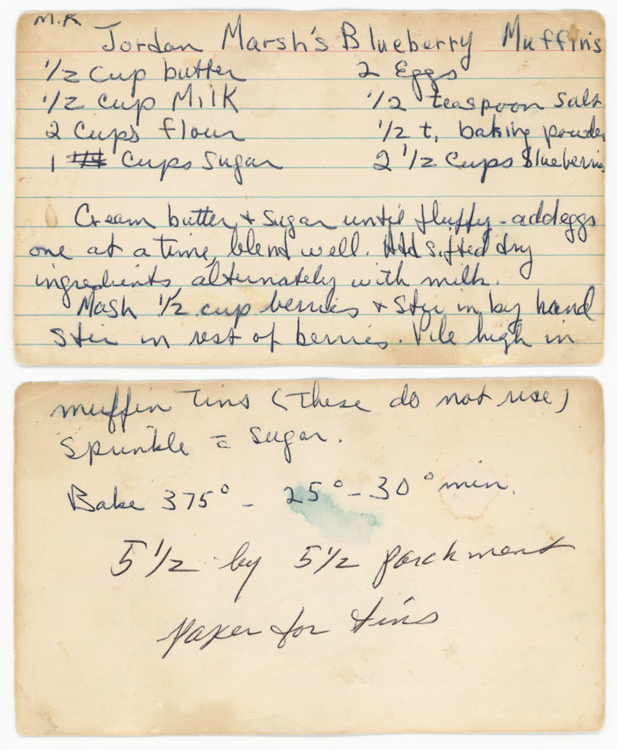 M.K
Jordan Marsh's Blueberry Muffins
1/2 cup butter 2 Eggs
1/2 cup Milk 1/2 teaspoon salt
2 Cups flour 1/2 t. baking powder
1 cups Sugar 2 1/2 cups Blueberries
Cream butter & sugar until fluffy - add eggs
one at a time, blend well. Add sifted dry
ingredients alturnately with milk.
Mash 1/2 cup berries & Stir in by hand
Stir in rest of berries. Pile high in
muffin Tins (These do not rise)
Sprinkle c̄ Sugar.
Bake 375° - 25° - 30° min.
5 1/2 by 5 1/2 parchment
paper for tins